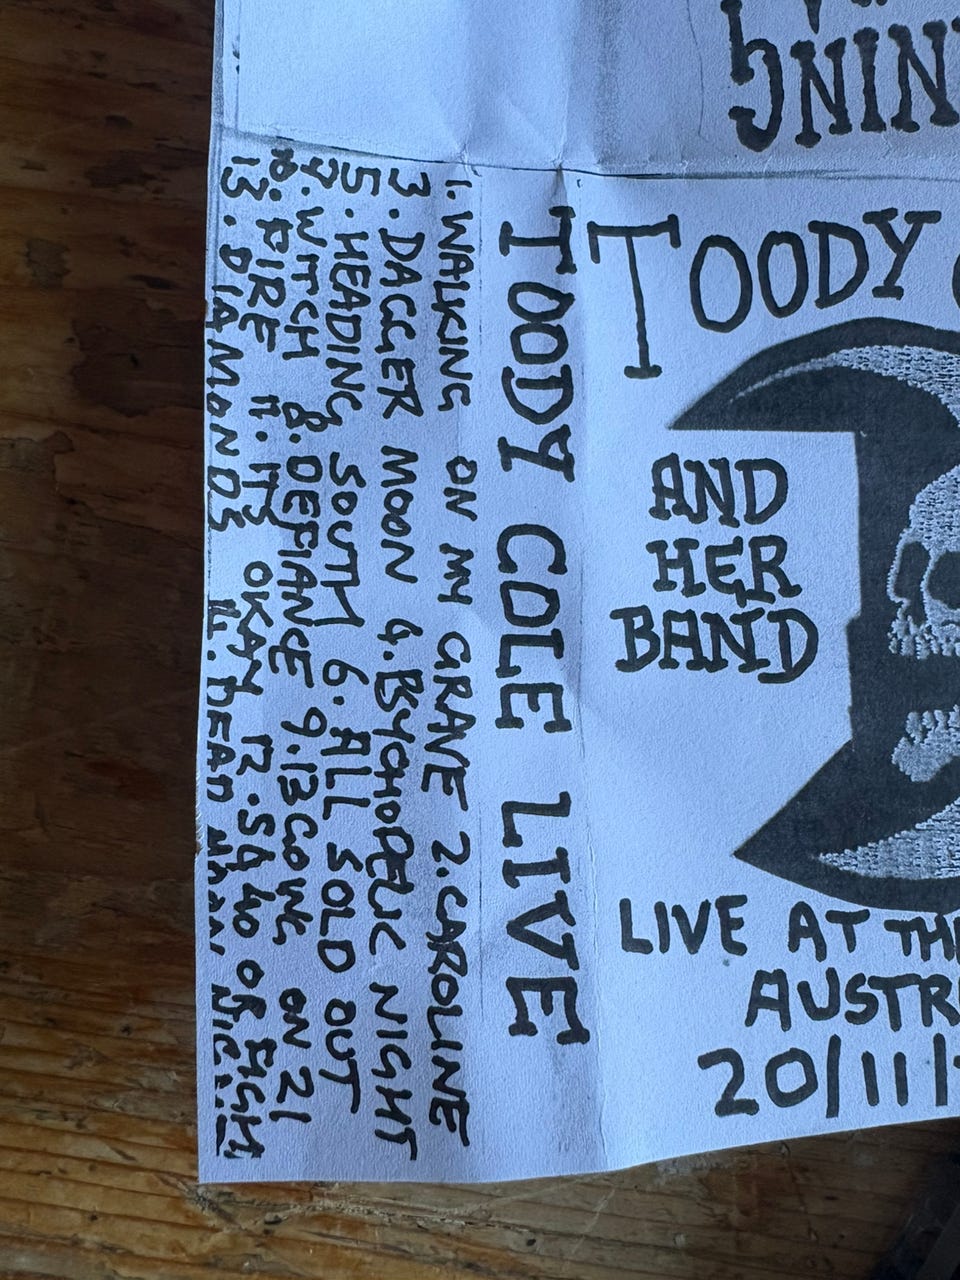 NING
TOODY
AND
HER
BAND
LIVE AT THE
AUSTR
20/11/
TOODY COLE LIVE
1. WALKING ON MY GRAVE 2. CAROLINE
3. DAGGER MOON 4. PSYCHODELIC NIGHT
5. HEADING SOUTH 6. ALL SOLD OUT
7. WITCH 8. DEFIANCE 9. 13 GOING ON 21
10. FIRE 11. ITS OKAY 12. SAY OR FIGHT
13. DIAMONDS 14. DEAD MOON NIGHT